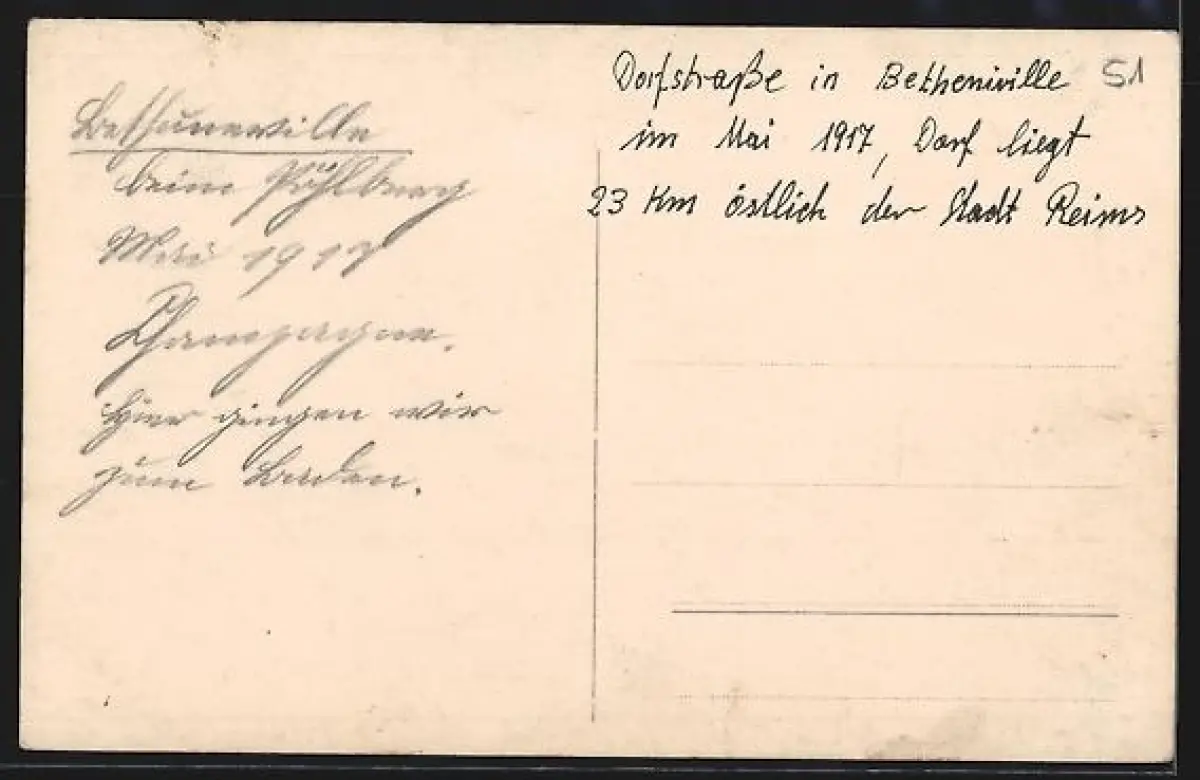 Bethuneville
beim Pöhlberg
Mai 1917
Champagne.
Hier gingen wir
zum Baden.
Dorfstraße in Betheniville 51
im Mai 1917, Dorf liegt
23 Km östlich der Stadt Reims